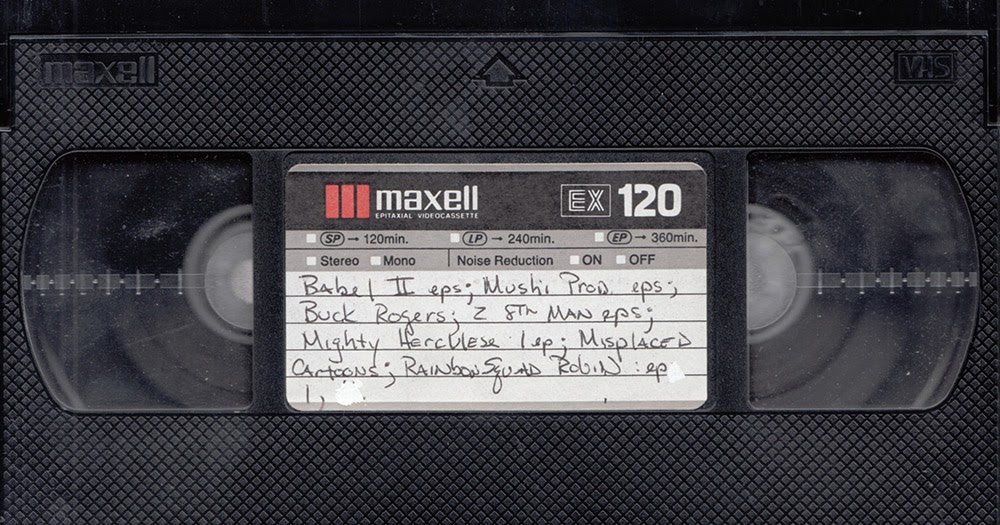 maxell
VHS
maxell EX 120
EPITAXIAL VIDEOCASSETTE
SP → 120min. LP → 240min. EP → 360min.
Stereo Mono Noise Reduction ON OFF
Babel II eps; Mushi Prod eps;
Buck Rogers; 2 8TH MAN eps;
Mighty Herculese 1 ep; MISPLACED
CARTOONS; RAINBOW SQUAD ROBIN: ep
1,